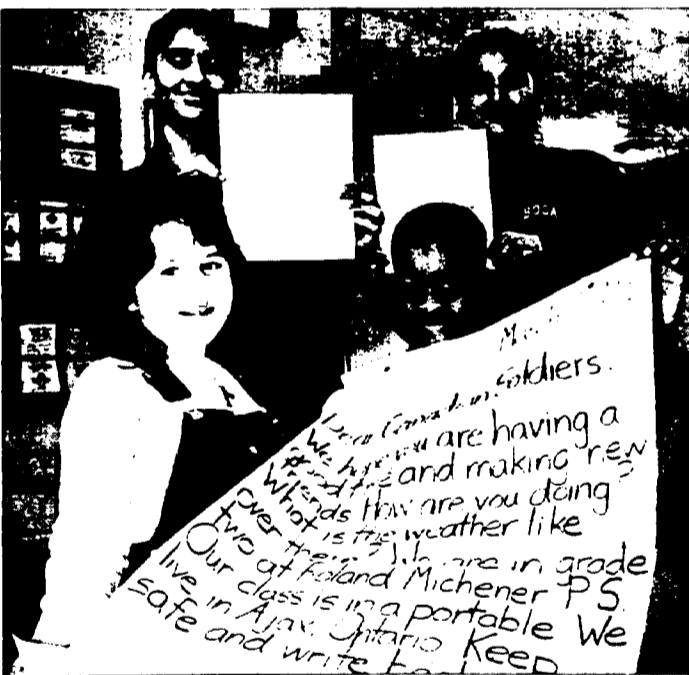 Dear Canadian Soldiers.
We hope you are having a
good time and making new
friends How are you doing?
What is the weather like
over there? We are in grade
two at Roland Michener PS.
Our class is in a portable We
live in Ajax, Ontario Keep
safe and write